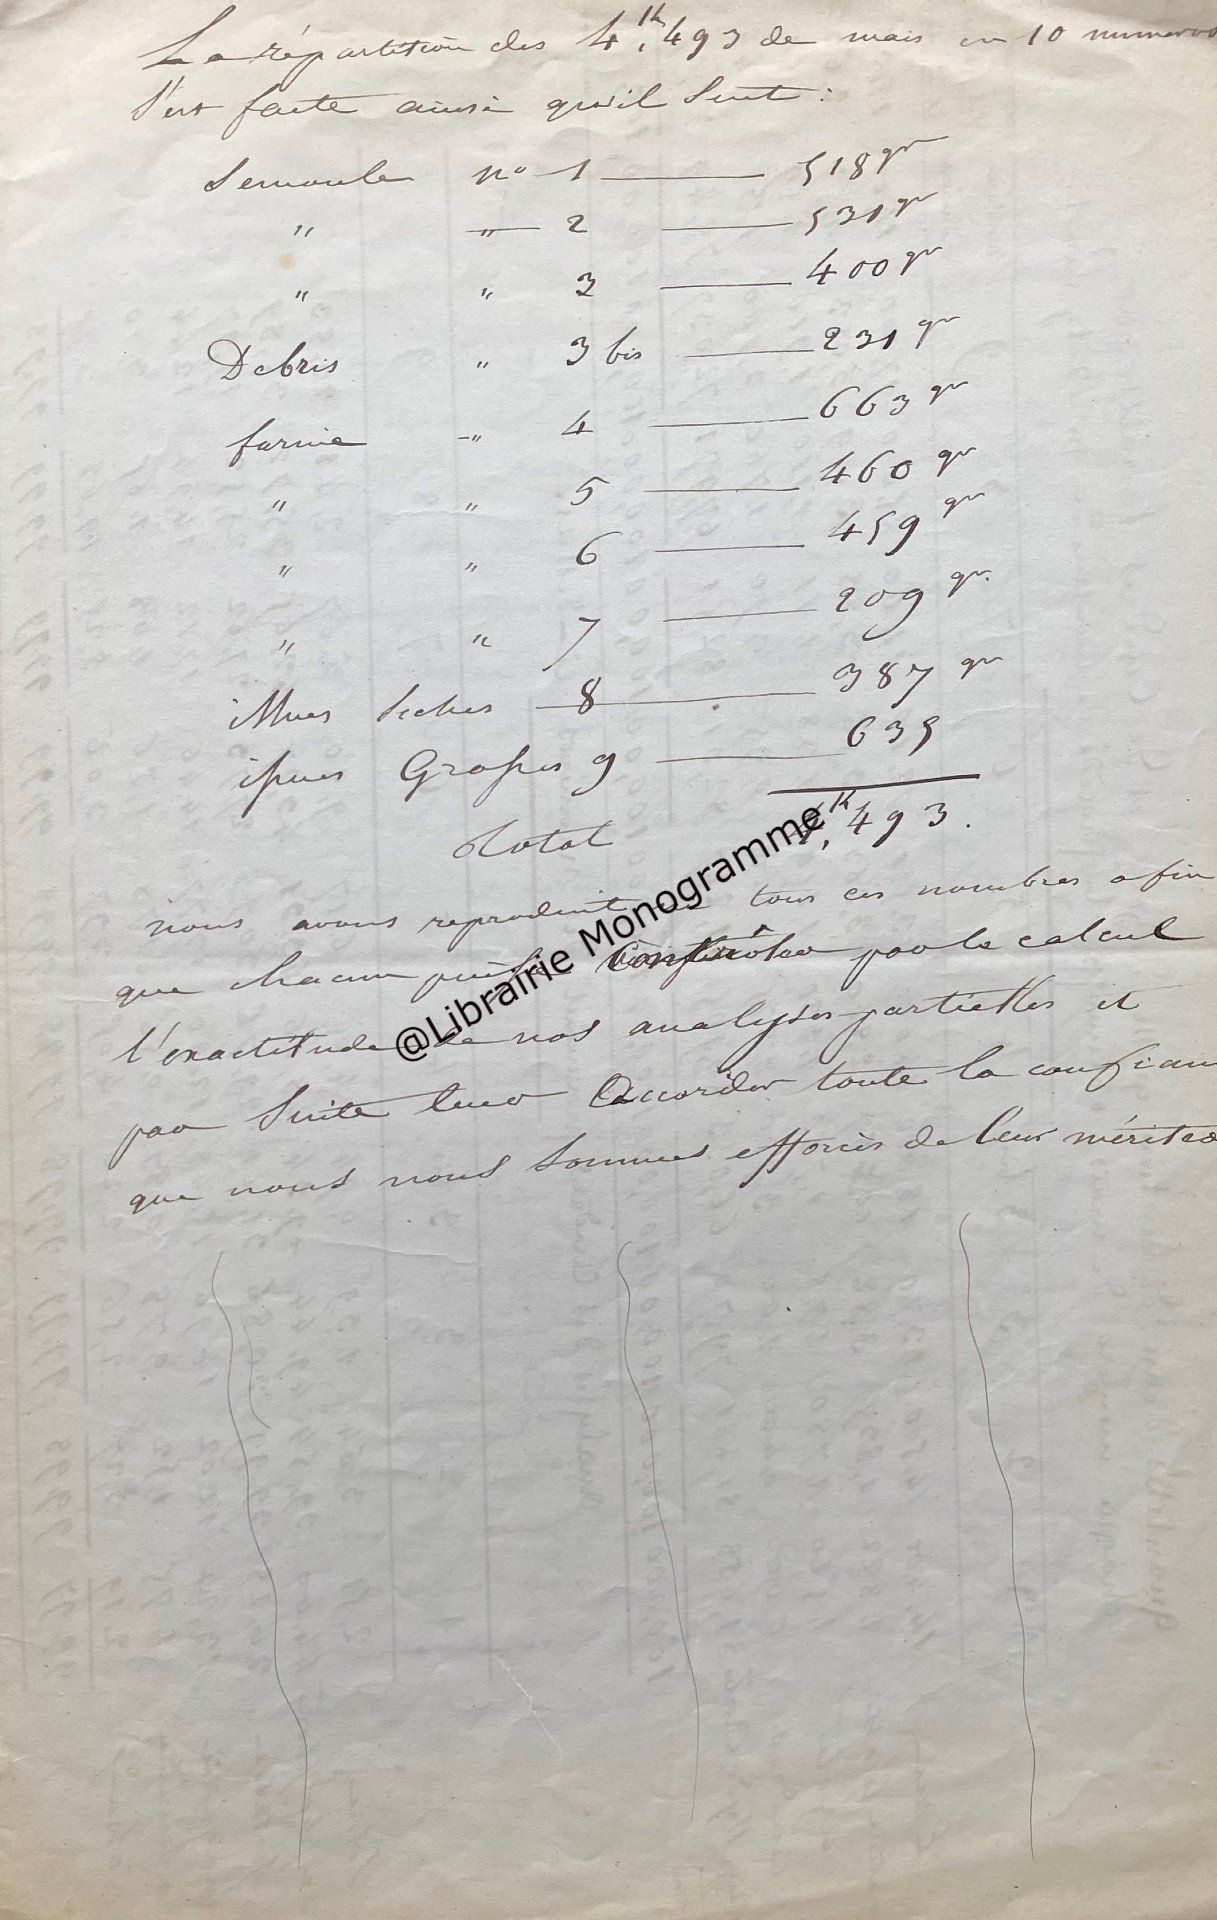 La répartition des 4k,493 de mais en 10 numeros
s'est faite ainsi qu'il suit :
Semoule no 1 518 gr
" " 2 531 gr
" " 3 400 gr
Debris " 3 bis 231 gr
farine " 4 663 gr
" " 5 460 gr
" " 6 459 gr
" " 7 209 gr.
issues seches 8 387 gr
issues Grasses 9 635
Total 4k,493.
nous avons reproduit tous ces nombres afin
que chacun puisse contrôler par le calcul
l'exactitude de nos analyses partielles et
par suite leur accorder toute la confian
que nous nous sommes efforcés de leur mériter
@Librairie Monogramme